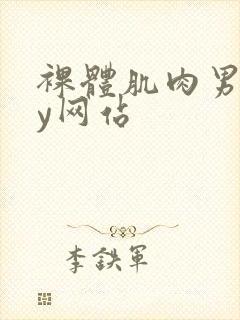 裸體肌肉男
y网佔
李鉄軍